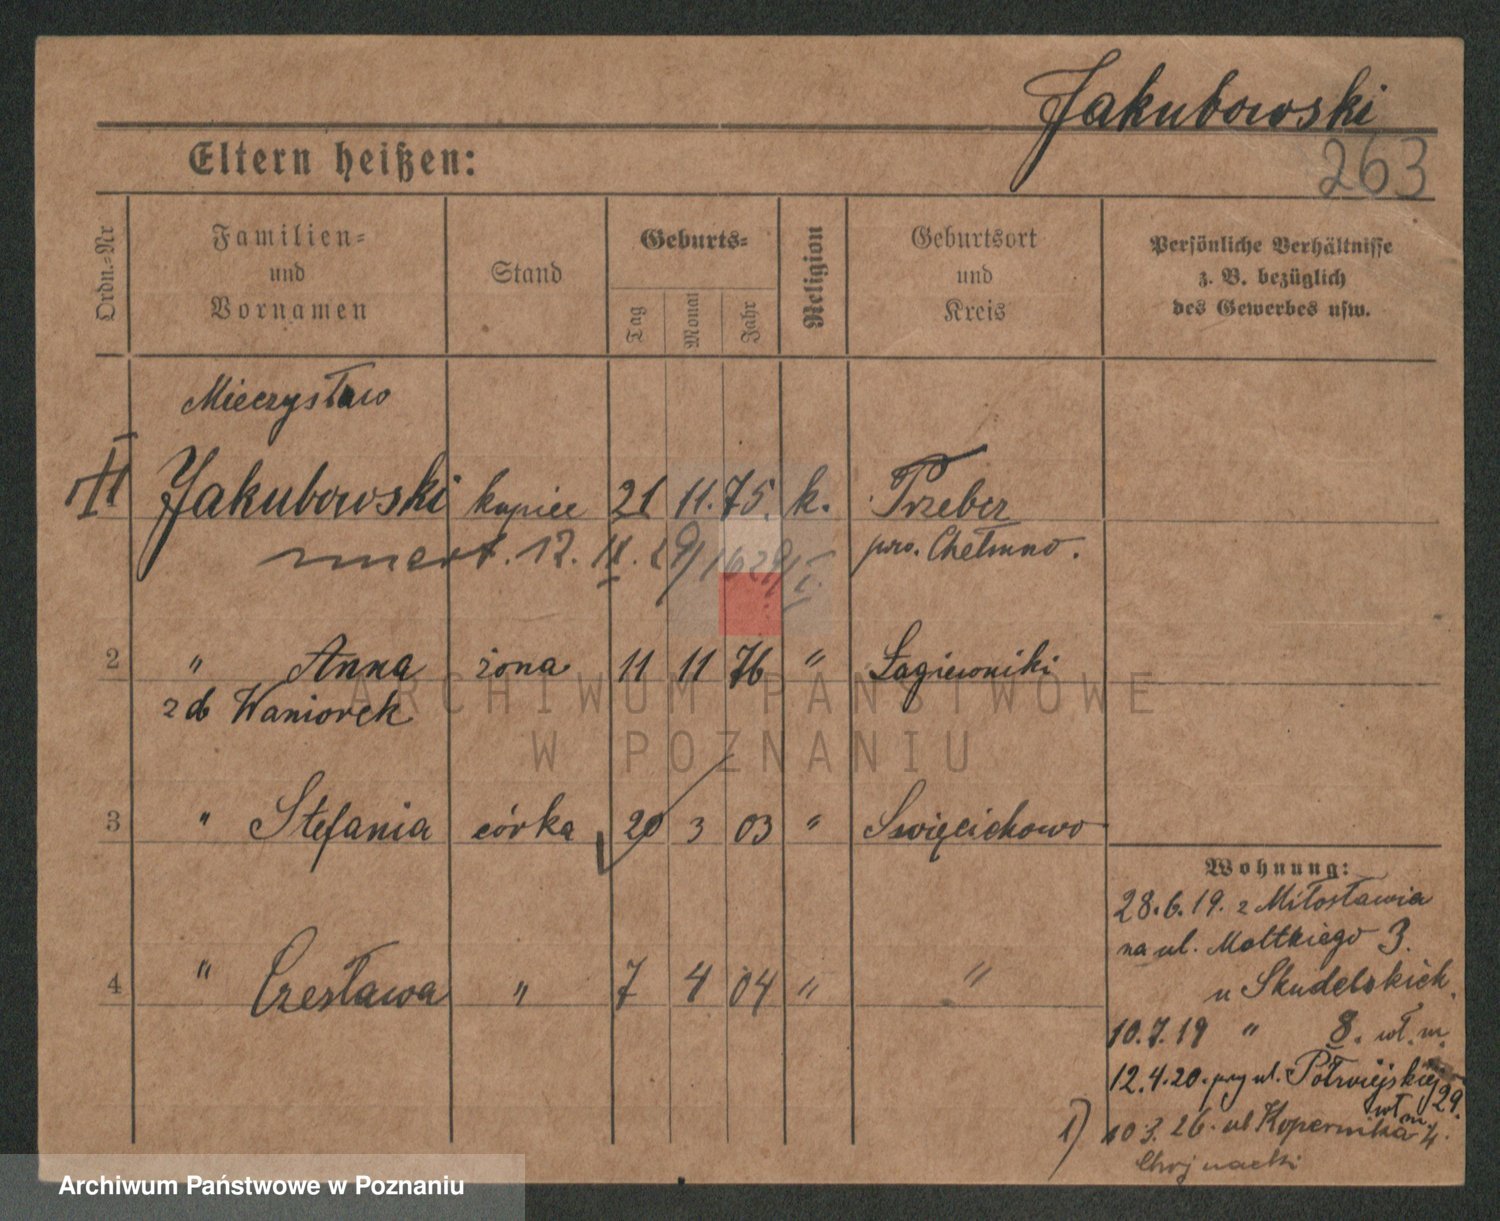 Jakubowski
263
Eltern heißen:
Ordn.=Nr
Familien=
und
Vornamen
Stand
Geburts=
Tag
Monat
Jahr
Religion
Geburtsort
und
Kreis
Persönliche Verhältnisse
z. B. bezüglich
des Gewerbes usw.
Mieczysław
Jakubowski kupiec 21 11. 75. k. Przebez
umarł. 12. II. 29
pw. Chełmno.
2 " Anna żona 11 11 76 " Łagiewniki
z d Waniorek
3 " Stefania córka 20 3 03 " Swięcichowo
4 " Czesława " 7 4 04 " "
Wohnung:
28.6.19. z Miłosławia
na ul. Moltkiego 3.
u Skudelskich.
10.7.19 " 8. wł. m.
12.4.20. przy ul. Półwiejskiej 29.
wł m.
1) 10 3. 26. ul Kopernika 4.
Chojnacki
ARCHIWUM PAŃSTWOWE
W POZNANIU
Archiwum Państwowe w Poznaniu